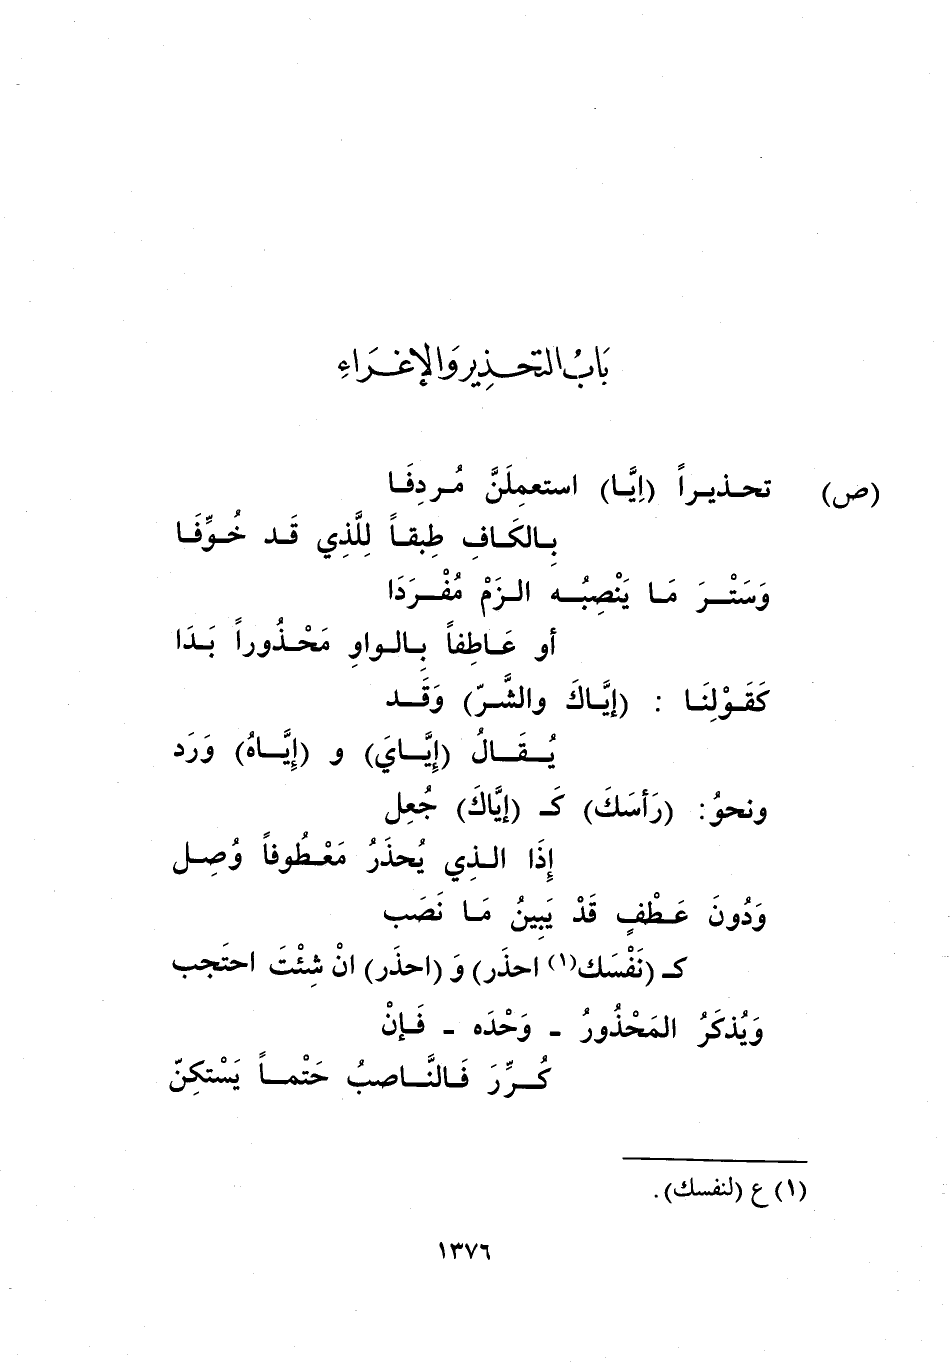 بَابُ التحذِير وَالإغرَاءِ
(ص) تحذيراً (إيَّا) استعمِلَنَّ مُردِفَا
بِالكَافِ طِبقاً لِلَّذِي قَد خُوِّفَا
وَسَتْرَ مَا يَنْصِبُه الزَمْ مُفْرَدَا
أو عَاطِفاً بِالواوِ مَحْذُوراً بَدَا
كَقَوْلِنَا : (إيَّاكَ والشَّرّ) وَقَد
يُقَالُ (إيَّايَ) و (إيَّاهُ) وَرَد
ونحوُ: (رَأسَكَ) كَـ (إيَّاكَ) جُعِل
إِذَا الذِي يُحذَرُ مَعْطُوفاً وُصِل
وَدُونَ عَطْفٍ قَدْ يَبِينُ مَا نَصَب
كـ (نَفْسَك(١) احذَر) وَ (احذَر) انْ شِئْتَ احتَجب
وَيُذكَرُ المَحْذُورُ ـ وَحْدَه ـ فَإنْ
كُرِّرَ فَالنَّاصبُ حَتْماً يَسْتكِنّ
(١) ع (لنفسك).
١٣٧٦